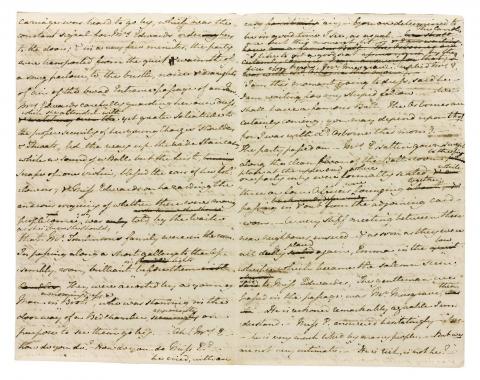 carriage was heard to go by, which was the
constant signal for Mr Edwards's ordering his
to the door; & in a very few minutes, the party
were transported from the quiet warmth of
a snug parlour, to the bustle, noise & draughts
of air of the broad Entrance passage of an Inn.
Mrs Edwards carefully guarding her own dress,
while she attended with yet greater Solicitude to
the proper security of her young Charges' Shoulders
& Throats, led the way up the wide staircase,
while no sound of a Ball but the first
Scrape of one violin, blessed the ears of her fol:
:lowers, & Miss Edwards on hazarding the
anxious enquiry of whether there were many
people come yet was told by the Waiter
as she knew she should,
that Mr Tomlinson's family were in the room.
In passing along a short gallery to the as:
:sembly room, brilliant in lights before them
they were accosted by a young
Man in a morning dress & Boots, who was standing in the
doorway of a Bedchamber apparently on
purpose to see them go by. "Ah! Mrs E—
how do you do? How do you do Miss E.?
he cried, with an
easy air; You are determined to
be in good time I see, as usual. The Candles
are but this moment lit
I like to get a good seat by the
fire you know, Mr Musgrave. replied Mrs E.
I am this moment going to dress, said he
I am waiting for my stupid fellow. We
shall have a famous Ball. The Osbornes are
certainly coming; you may depend upon that
for I was with Ld Osborne this morng
The party passed on Mrs E's sattin gown swept
along the clean floor of the Ball-room, to the fire
place at the upper end, where
one party only were formally seated, while
three or four Officers were lounging together,
passing in & out from the adjoining card-
room. A very stiff meeting between these
near neighbours ensued & as soon as they were
all duely placed again, Emma in the low
whisper which became the solemn scene
said to Miss Edwardes, The gentleman we
passed in the passage, was Mr Musgrave, then
He is reckoned remarkably agreable I un:
:derstand. Miss E. answered hesitatingly Yes
he is very much liked by many people. But we
are not very intimate. He is rich, is not he?